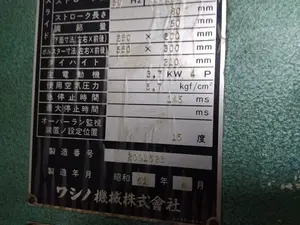 ストローク長さ 80
調節量 50
下面寸法(左右×前後) 280 × 200
ボルスター寸法(左右×前後) 550 × 300 mm
ダイハイト 210 mm
主電動機 3.7 KW 4 P
使用空気圧力 5 kgf/cm²
急停止時間 145 ms
最大停止時間 ms
オーバーラン監視
装置/設定位置 15 度
製造番号
製造年月 昭和 61 年 6 月
ワシノ機械株式會社